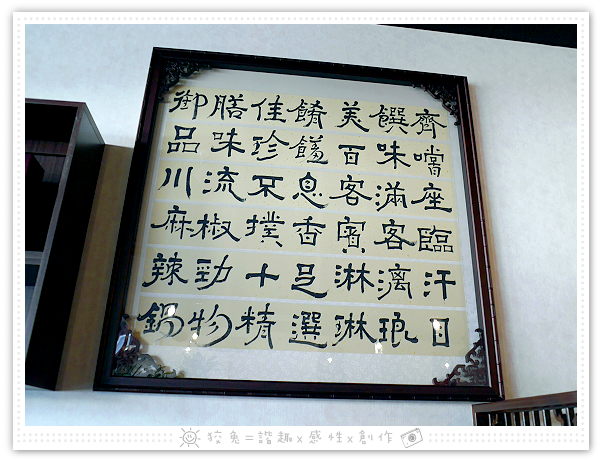 御膳佳餚美饌齊
品味珍饈百味嚐
川流不息客滿座
麻椒撲香賓客臨
辣勁十足淋漓汗
鍋物精選琳瑯目
狡兔=諧趣x感性x創作